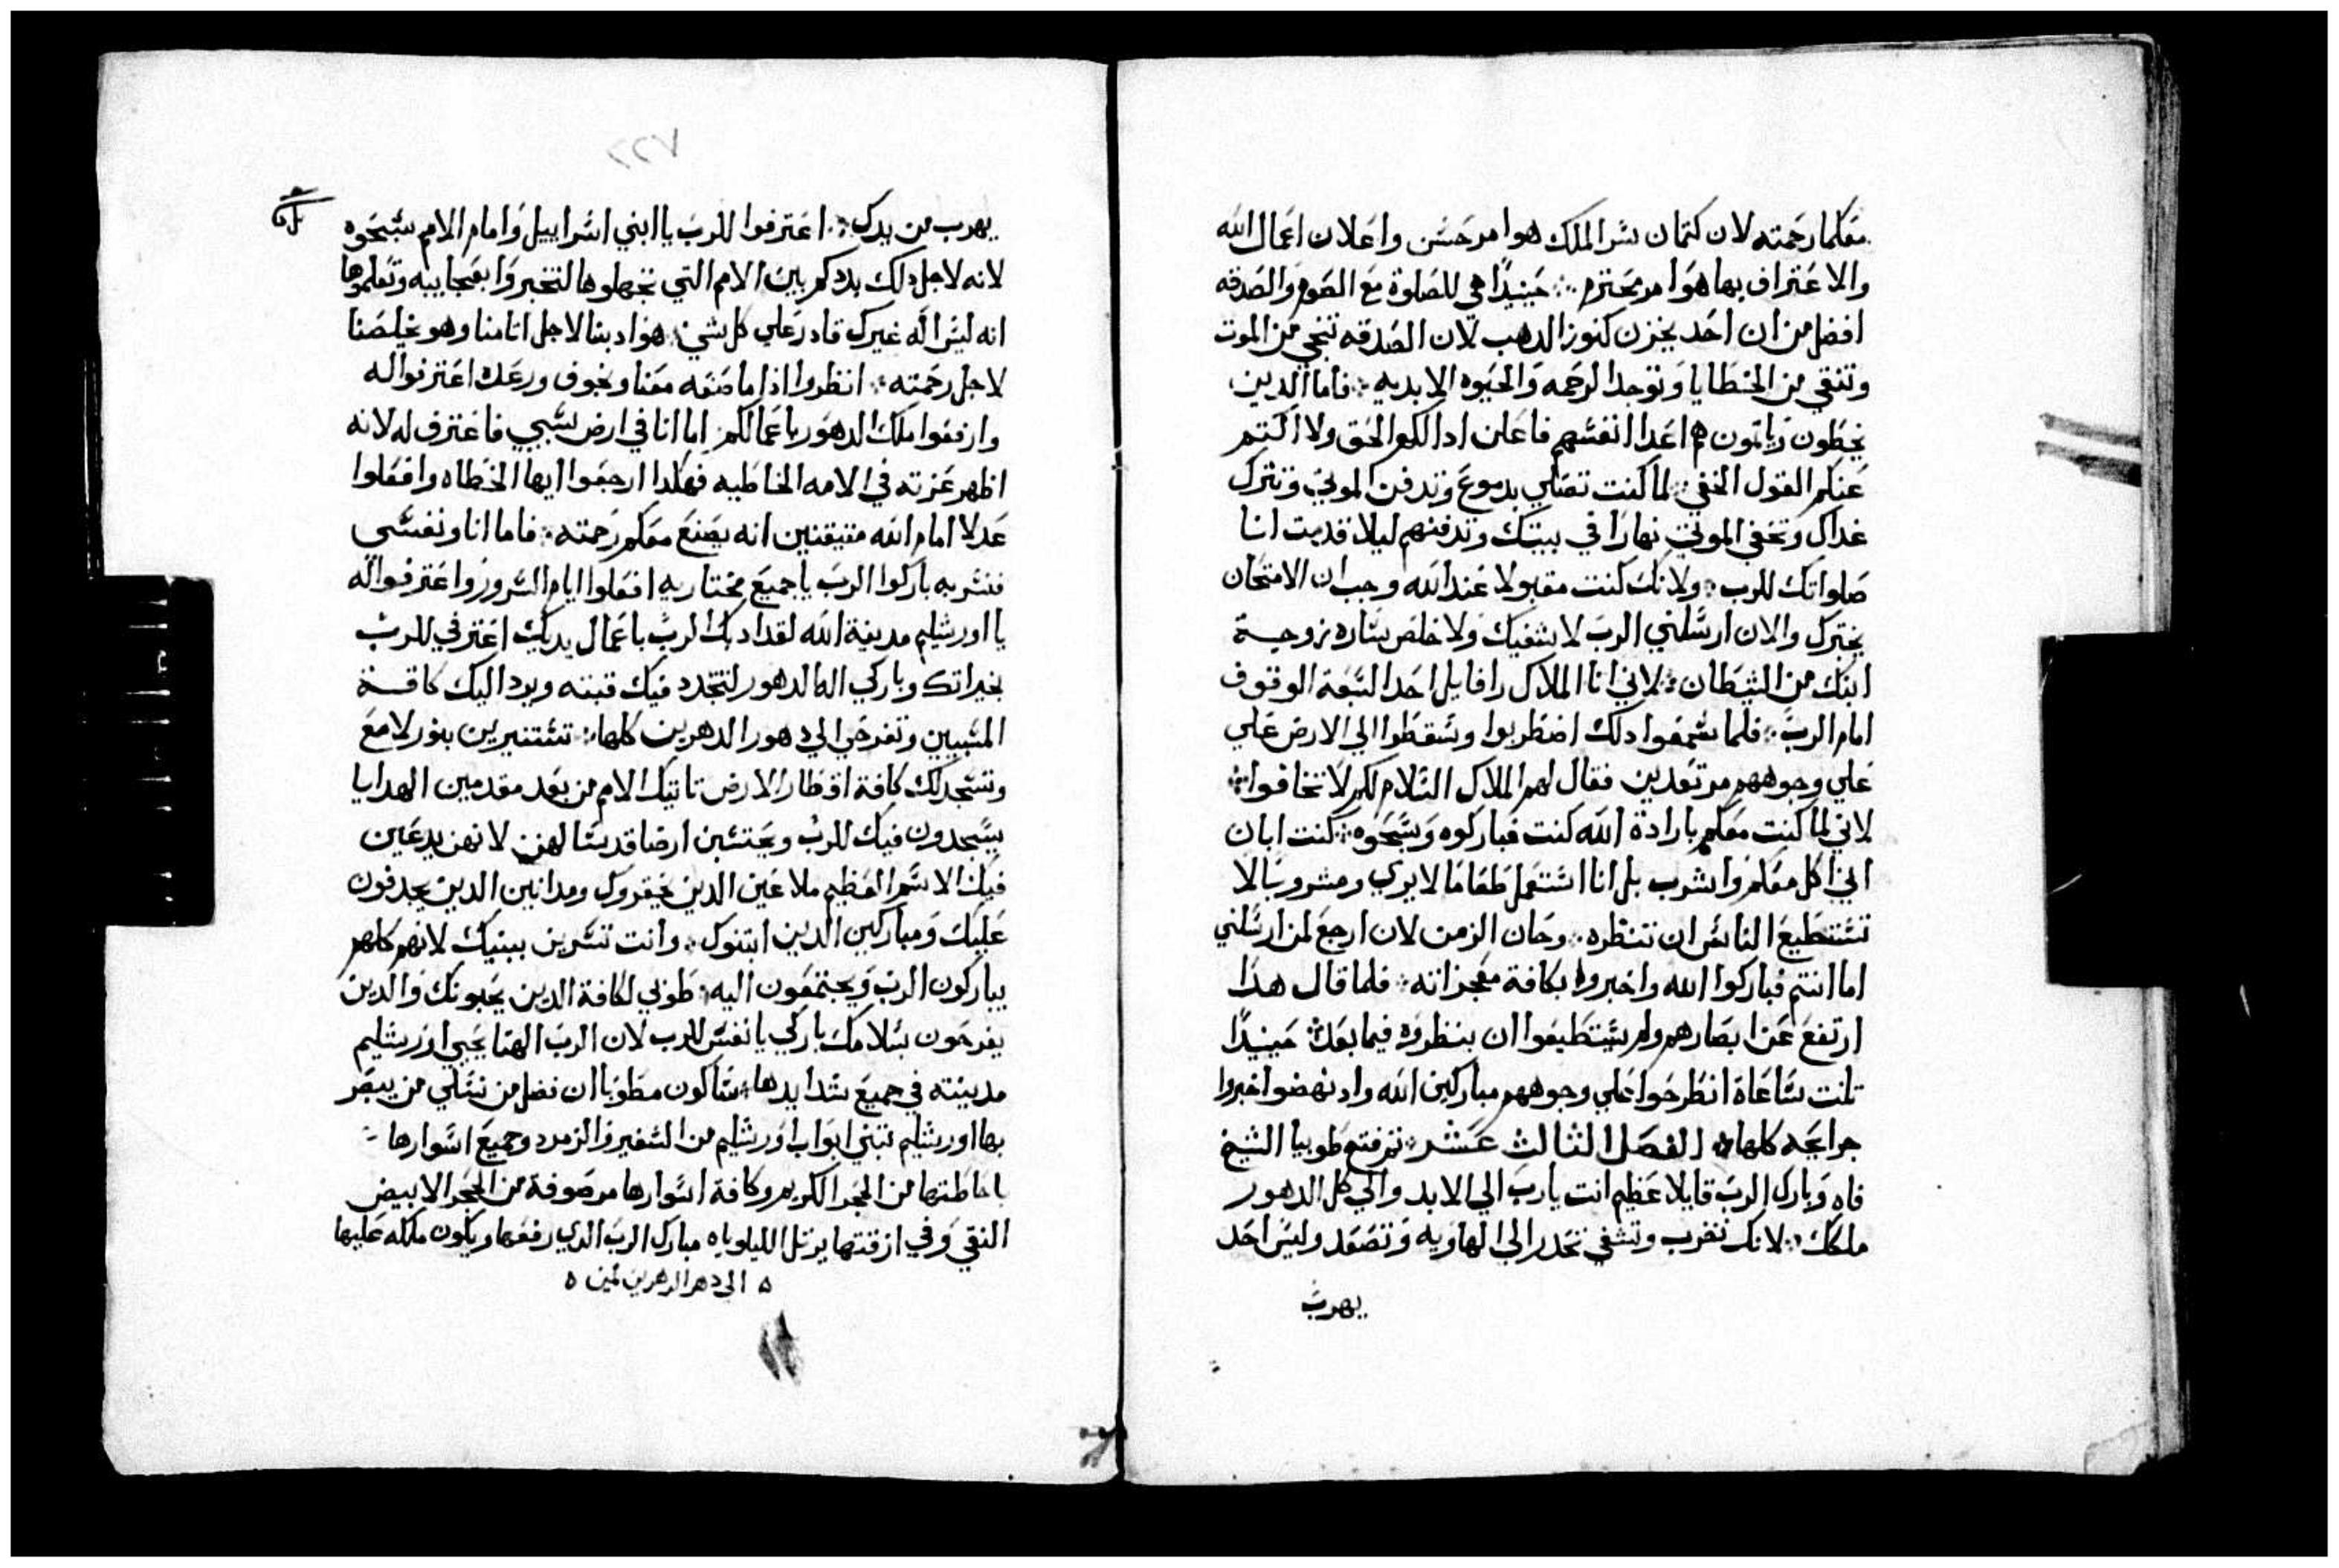 معكما رحمته لان كتمان سر الملك هوا مر حسن واعلان اعمال الله
والاعتراف بها هوا مر محترم ۞ حينيدًا هي للصلوة مع الصوم والصدقه
افضل من ان احد يخزن كنوز الدهب لان الصدقه تنجي من الموت
وتنقي من الخطايا وتوجد الرحمه والحيوه الابديه ۞ فاما الدين
يخطون وياتون هم اعدا انفسهم فاعلن ادا لكم الحق ولا اكتم
عنكم القول الخفي ۞ لما كنت تصلي بدموع وتدفن الموتي وتترك
غداك وتخفي الموتي نهارًا في بيتك وتدفنهم ليلا قدمت انا
صلواتك للرب ۞ ولانك كنت مقبولا عند الله وجب ان الامتحان
يختبرك والان ارسلني الرب لاشفيك ولاخلص ساره زوجة
ابنك من الشيطان ۞ لاني انا الملاك رافايل احد السبعة الوقوف
امام الرب ۞ فلما سمعوا دلك اضطربوا وسقطوا الي الارض علي
علي وجوههم مرتعدين فقال لهم الملاك السلام لكم لا تخافوا ۞
لاني لما كنت معكم بارادة الله كنت فباركوه وسبحوه ۞ كنت ابان
اني اكل معكم واشرب بل انا استعمل طعامًا لا يري ومشروبًا لا
تستطيع الناس ان تنظره ۞ وحان الزمن لان ارجع لمن ارسلني
اما انتم فباركوا الله واخبروا بكافة معجزاته ۞ فلما قال هدا
ارتفع عن ابصارهم ولم يستطيعوا ان ينظروه فيما بعد ۞ حينيدًا
تلت ساعاة انطرحوا علي وجوههم مباركين الله واد نهضوا اخبروا
جرايحه كلها ۞ الفصل الثالث عشر ۞ ثم فتح طوبيا الشيخ
فاه وبارك الرب قايلا عظيم انت يارب الي الابد والي كل الدهور
ملكك ۞ لانك تضرب وتشفي تحدر الي الهاويه وتصعد وليس احد
يهرب
٧٢٢
يهرب من يدك ۞ اعترفوا للرب يا ابني اسراييل وامام الامم سبحوه
لانه لاجل دلك بددكم بين الامم التي تجهلوها لتخبروا بعجايبه وتعلموها
انه ليس اله غيرك قادر علي كل شي ۞ هو ادبنا لاجل اثامنا وهو يخلصنا
لاجل رحمته ۞ انظروا اذا ما صنعه معنا وبخوف ورعده اعترفوا له
وارفعوا ملك الدهور باعمالكم اما انا في ارض سبيي فاعترف له لانه
اظهر عزته في الامه الخاطيه فهكدا ارجعوا ايها الخطاه وافعلوا
عدلا امام الله متيقنين انه يصنع معكم رحمته ۞ فاما انا ونفسي
فنسر به باركوا الرب يا جميع مختاريه افعلوا ايام السرور واعترفوا له
يا اورشليم مدينة الله لقد ادبك الرب باعمال يديك اعترفي للرب
بخيراتك وباركي اله الدهور لتتجدد فيك قبته ويرد اليك كافة
المسبيين وتفرحي الي دهور الدهرين كلها ۞ تستنيرين بنور لامع
وتسجد لك كافة اقطار الارض تاتيك الامم من بعد مقدمين الهدايا
يسجدون فيك للرب ويحتسبن ارضا قديسًا لهن لانهن يدعين
فيك الاسم العظيم ملاعين الدين يحقروك ومدانين الدين يجدفون
عليك ومباركين الدين ابتنوك ۞ وانت تسرين ببنيك لانهم كلهم
يباركون الرب ويجتمعون اليه ۞ طوبي لكافة الدين يحبونك والدين
يفرحون بسلامك باركي يا نفسي للرب لان الرب الهنا يحيي اورشليم
مدينته في جميع شدايدها ۞ ساكون مطوبًا ان فضل من نسلي من يبصر
بها اورشليم تبتني ابواب اورشليم من السفير والزمرد وجميع اسوارها
باحاطتها من الحجر الكريم وكافة اسوارها مرصوفة من الحجر الابيض
النقي وفي ازقتها يرتل الليلوياه مبارك الرب الدي رفعها ويكون ملكه عليها
الي دهر الدهرين امين